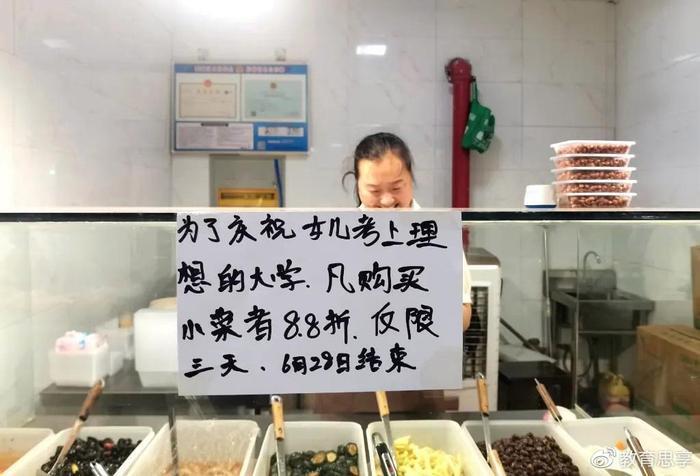 为了庆祝女儿考上理
想的大学.凡购买
小菜者8.8折.仅限
三天.6月28日结束
@教育思享